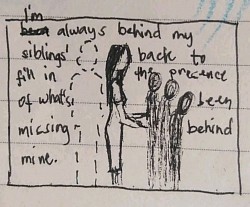 I'm
always behind my
siblings' back to
fill in the presence
of what's been
missing behind
mine.